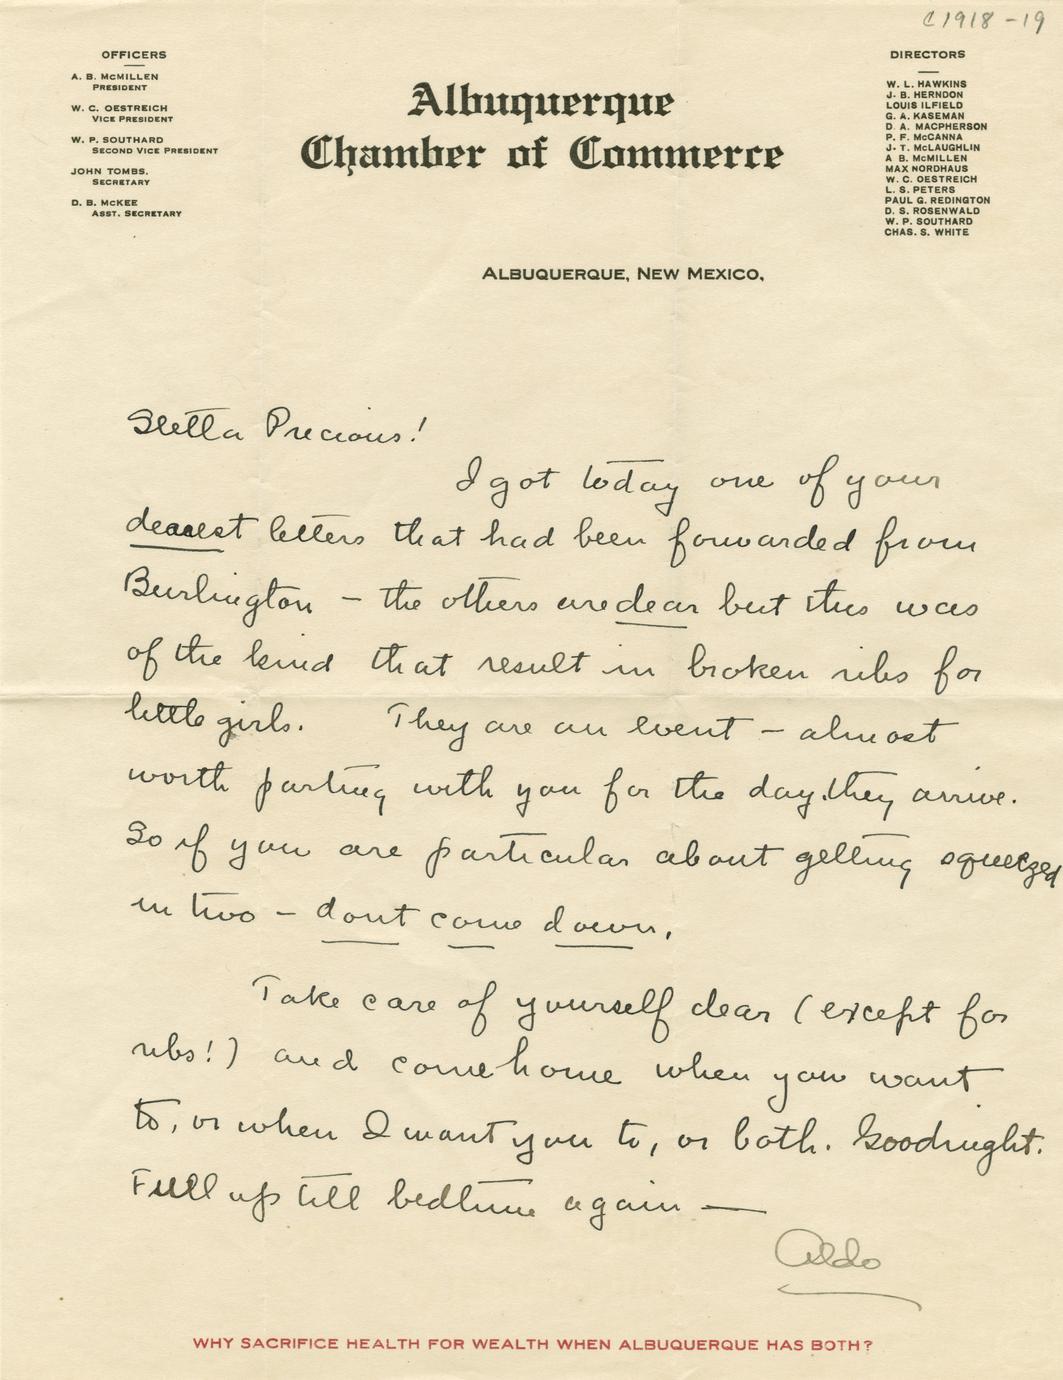 c1918-19
OFFICERS
A. B. McMILLEN
PRESIDENT
W. C. OESTREICH
VICE PRESIDENT
W. P. SOUTHARD
SECOND VICE PRESIDENT
JOHN TOMBS.
SECRETARY
D. B. McKEE
ASST. SECRETARY
Albuquerque
Chamber of Commerce
DIRECTORS
W. L. HAWKINS
J. B. HERNDON
LOUIS ILFIELD
G. A. KASEMAN
D. A. MACPHERSON
P. F. McCANNA
J. T. McLAUGHLIN
A B. McMILLEN
MAX NORDHAUS
W. C. OESTREICH
L. S. PETERS
PAUL G. REDINGTON
D. S. ROSENWALD
W. P. SOUTHARD
CHAS. S. WHITE
ALBUQUERQUE, NEW MEXICO,
Stella Precious!
I got today one of your
dearest letters that had been forwarded from
Burlington – the others are dear but this was
of the kind that result in broken ribs for
little girls. They are an event – almost
worth parting with you for the day they arrive.
So if you are particular about getting squeezed
in two – dont come down.
Take care of yourself dear (except for
ribs!) and come home when you want
to, or when I want you to, or both. Goodnight.
Full up till bedtime again —
Aldo
WHY SACRIFICE HEALTH FOR WEALTH WHEN ALBUQUERQUE HAS BOTH?